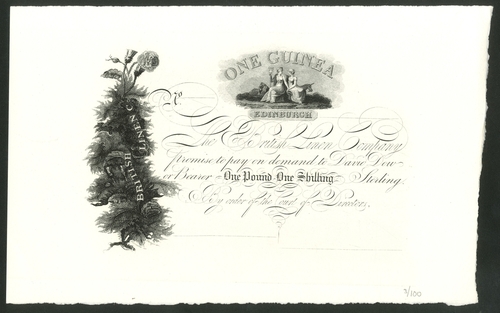 ONE GUINEA
EDINBURGH
No.
The British Linen Company
promise to pay on demand to David Dow-
or Bearer - One Pound One Shilling - Sterling
By order of the Court of Directors.
BRITISH LINEN Co.
3/100